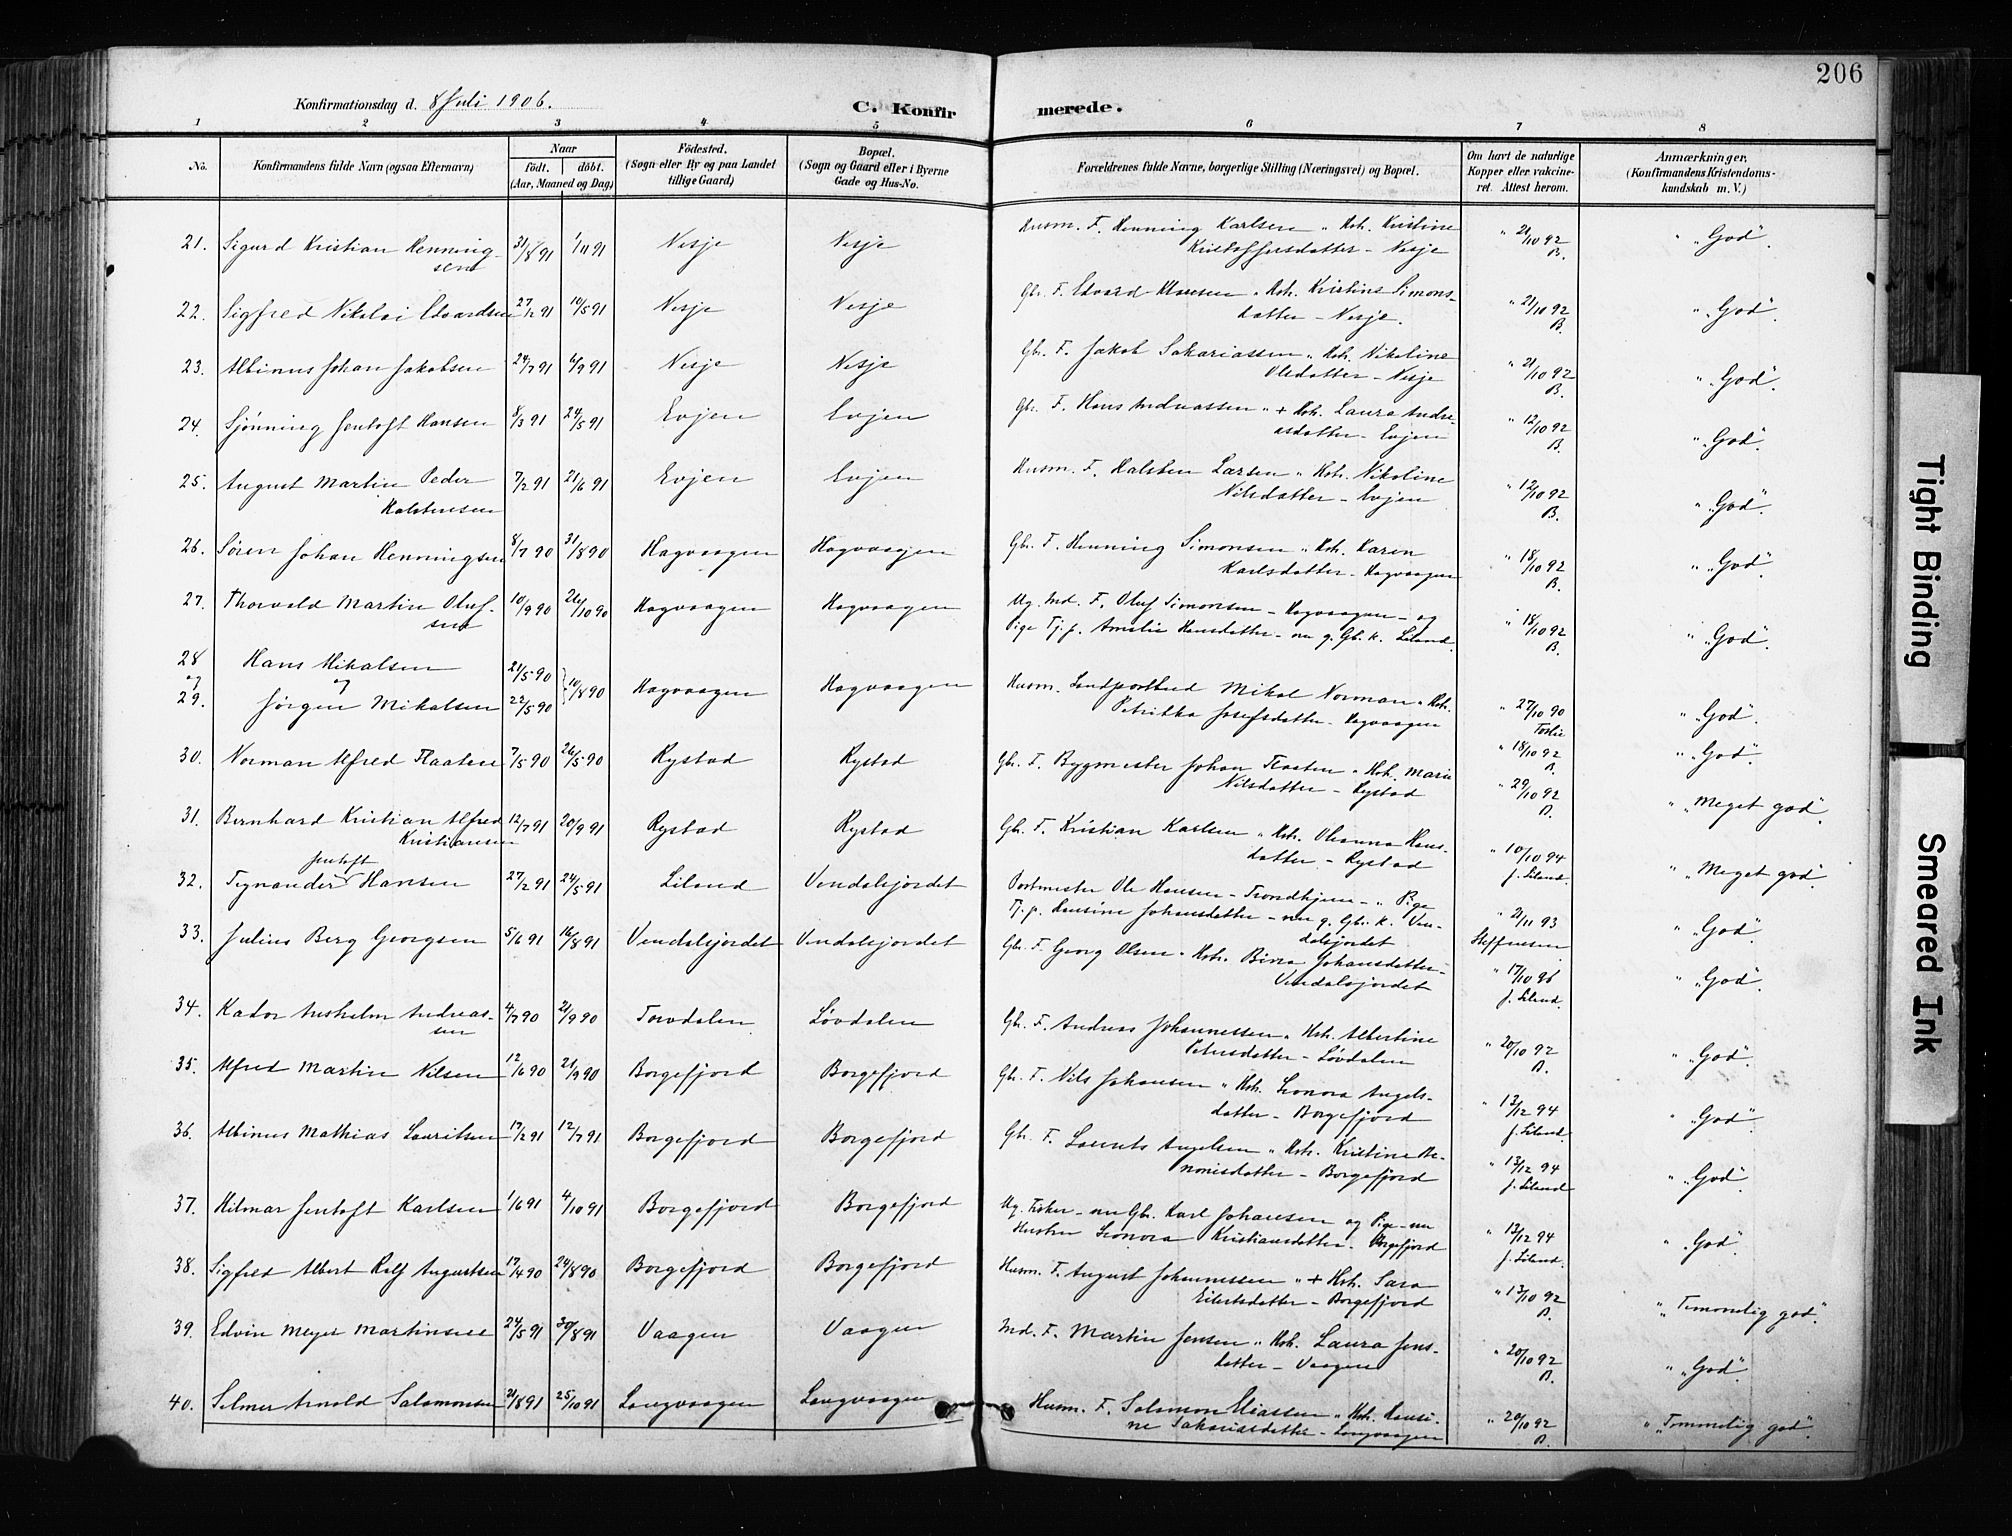 206
Konfirmationsdag d. 8 Juli 1906.
C. Konfir merede.
1 2 3 4 5 6 7 8
No.
Konfirmandens fulde Navn (ogsaa Efternavn)
Naar
født. døbt.
(Aar, Maaned og Dag)
Fødested.
(Sogn eller By og paa Landet
tillige Gaard)
Bopæl.
(Sogn og Gaard eller i Byerne
Gade og Hus-No.
Forældrenes fulde Navne, borgerlige Stilling (Næringsvei) og Bopæl.
Om havt de naturlige
Kopper eller vakcine-
ret. Attest herom.
Anmærkninger,
(Konfirmandens Kristendoms-
kundskab m. V.)
21. Sigurd Kristian Henning- 31/8 91 1/11 91 Nesje Nesje Husm. F. Henning Karlsen " Kh. Kristine " 21/10 92 " "God".
sen Kristoffersdatter - Nesje B.
22. Sigfred Nikolai Edvardsen 27/2 91 10/5 91 Nesje Nesje Gbr. F. Edvard Klausen " Kh. Kristine Simons- " 21/10 92 " "God".
datter - Nesje. B.
23. Albinus Johan Jakobsen 24/7 91 6/9 91 Nesje Nesje Gbr. F. Jakob Sakariassen " Kh. Nikoline " 21/10 92 " "God".
Olsdatter - Nesje B.
24. Sjønning Jentoft Hansen 8/3 91 24/5 91 Evjen Evjen Gbr. F. Hans Andreassen " + Kh. Laura Andre- " 12/10 92 " "God".
asdatter - Evjen B.
25. August Martin Peder 7/2 91 21/6 91 Evjen Evjen Husm. F. Halsten Larsen " Kh. Nikoline " 12/10 92 " "God".
Halstensen Nilsdatter - Evjen B.
26. Søren Johan Henningsen 8/7 90 31/8 90 Hagvaagen Hagvaagen Gbr. F. Henning Simonsen " Kh. Karen " 18/10 92 " "God".
Karlsdatter - Hagvaagen B.
27. Thorvald Martin Oluf- 10/9 90 26/10 90 Hagvaagen Hagvaagen Ug. Md. F. Oluf Simonsen - Hagvaagen - og " 18/10 92 " "God".
sen Pige Tj. p. Amelie Hansdatter - nu g. Gb. k. Liland. B.
28 Hans Mikalsen 21/5 90
og og } 10/8 90 Hagvaagen Hagvaagen Husm. Landpostbud Mikal Norman " Kh. " 27/10 90 " "God".
29. Jørgen Mikalsen 22/5 90 Petrikka Josefsdatter - Hagvaagen " "God".
30. Norman Alfred Flaaten 7/5 90 26/5 90 Rystad Rystad Gbr. F. Bygmester Johan Flaaten " Kh. Marie " 18/10 92 B.
Nilsdatter - Rystad " 29/10 92 B.
31. Bernhard Kristian Alfred 12/7 91 20/9 91 Rystad Rystad Gbr. F. Kristian Karlsen " Kh. Oleanna Hans- " "Meget god".
Kristiansen datter - Rystad " 10/10 94
32. Tygnander Jentoft Hansen 27/2 91 24/5 91 Liland Vendalsjordet Postmester Ole Hansen - Trondhjem - " Pige J. Liland. " "Meget god".
Tj. p. Hansine Johansdatter - nu g. Gbr. k. Ven- " 21/11 93 " "God".
dalsjordet Steffensen
33. Julius Berg Georgsen 5/6 91 16/8 91 Vendalsjordet Vendalsjordet Gbr. F. Georg Olsen " Kh. Berea Johansdatter - " 17/10 96 " "God".
Vendalsjordet J. Liland.
34. Kador Anshelm Andreas- 4/7 90 21/9 90 Torvdalen Løvdalen Gbr. F. Andreas Johannessen " Kh. Albertine " 20/10 92 " "God".
sen Petersdatter - Løvdalen B.
35. Alfred Martin Nilsen 12/6 90 21/9 90 Borgefjord Borgefjord Gbr. F. Nils Johansen " Kh. Leonora Angels- " 13/12 94 " "God".
datter - Borgefjord J. Liland.
36. Albinus Mathias Lauritsen 17/2 91 12/7 91 Borgefjord Borgefjord Gbr. F. Laurits Angelsen " Kh. Kristine Be- " 13/12 94 " "God".
nonisdatter - Borgefjord J. Liland
37. Hilmar Jentoft Karlsen 1/6 91 4/10 91 Borgefjord Borgefjord Ug. Fisker - nu Gbr. Karl Johansen og Pige - nu " 13/12 94 " "God".
Hustru Leonora Kristiansdatter - Borgefjord J. Liland.
38. Sigfred Albert Rolf Augustsen 17/4 90 24/8 90 Borgefjord Borgefjord Husm. F. August Johannessen " + Kh. Sara " 13/10 92 " "Temmelig god".
Eilertsdatter - Borgefjord B.
39. Edvin Meyer Martinsen 24/5 91 30/8 91 Vaagen Vaagen Md. F. Martin Jensen " Kh. Laura Jens- " 20/10 92 " "God".
datter - Vaagen B.
40. Selmer Arnold Salamonsen 21/8 91 25/10 91 Langvaagen Langvaagen Husm. F. Salamon Eliassen " Kh. Hansi- " 20/10 92 " "Temmelig god".
ne Sakariasdatter - Langvaagen B.
Tight Binding
Smeared Ink